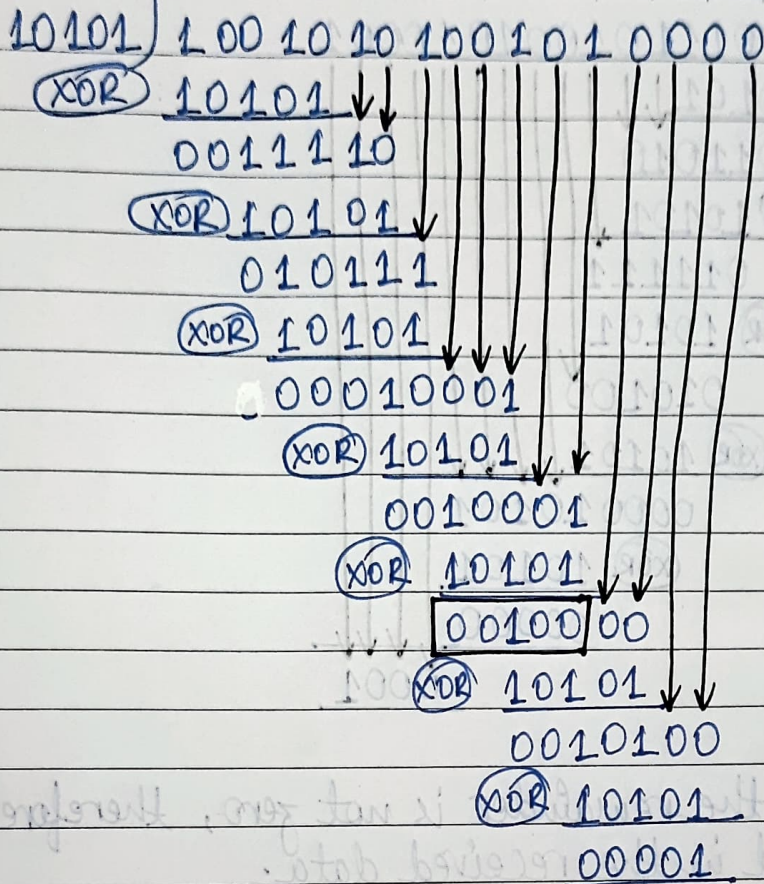 10101) 1 00 10 10 100 1 0 1 0 0 0 0
XOR 10101
0011110
XOR 10101
010111
XOR 10101
00010001
XOR 10101
0010001
XOR 10101
00100 00
XOR 10101
0010100
XOR 10101
00001